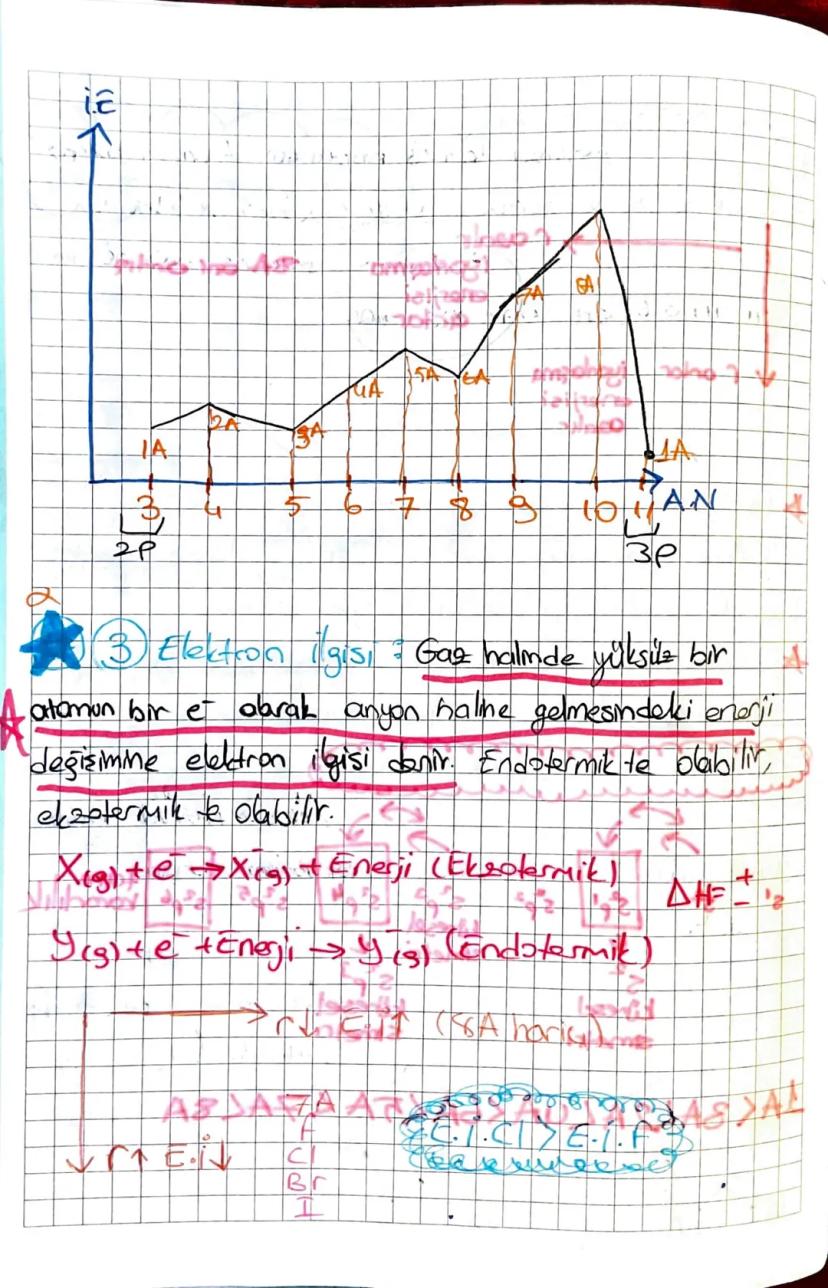 İ.E
1A 2A 3A 4A 5A 6A 7A 8A 1A
3 4 5 6 7 8 9 10 11 A.N
2P 3P
③ Elektron ilgisi : Gaz halinde yüksüz bir
atomun bir e⁻ alarak anyon haline gelmesindeki enerji
değişimine elektron ilgisi denir. Endotermikte olabilir,
ekzotermik te olabilir.
X(g) + e⁻ → X⁻(g) + Enerji (Ekzotermik)
ΔH= ±
Y(g) + e⁻ + Enerji → Y⁻(g) (Endotermik)
r↓ E.i↑ (8A hariç)
7A
F
Cl
Br
I
E.i.Cl > E.i.F
r↑ E.i↓